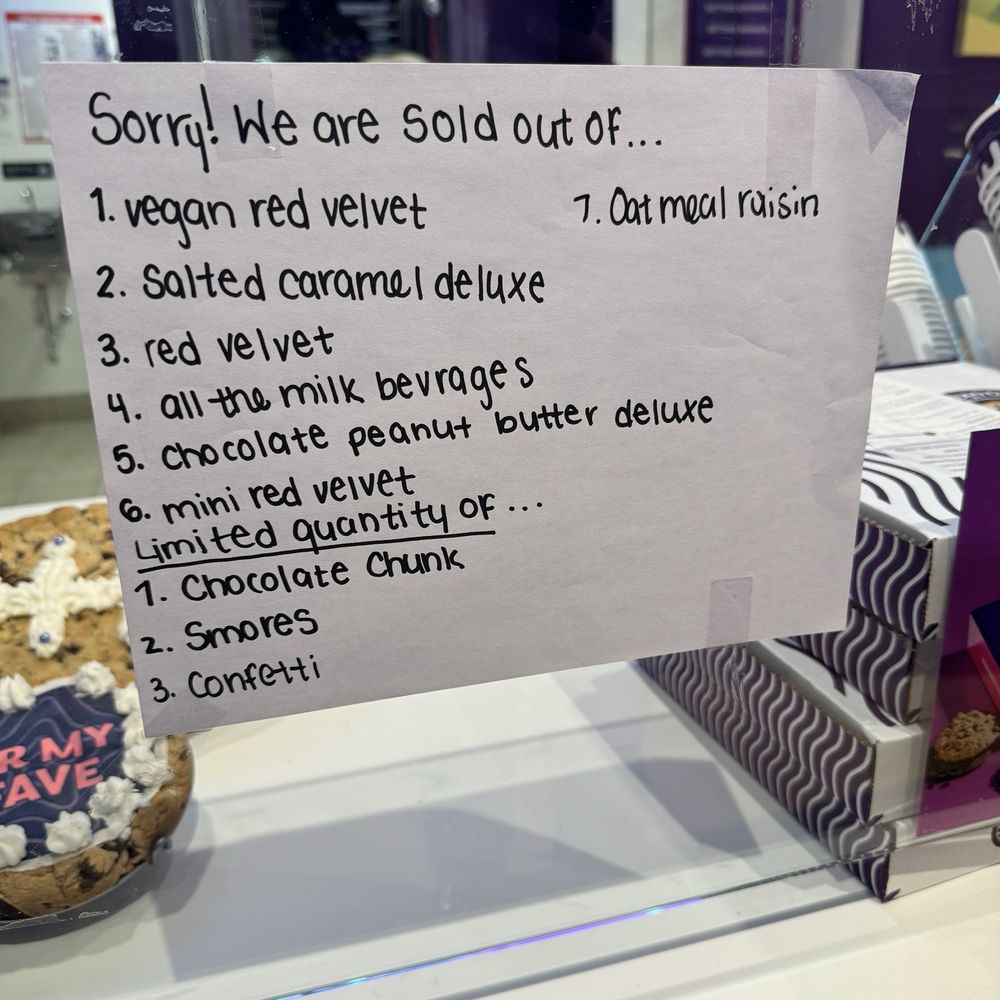 Sorry! We are sold out of...
1. vegan red velvet
7. Oatmeal raisin
2. Salted caramel deluxe
3. red velvet
4. all the milk bevrages
5. chocolate peanut butter deluxe
6. mini red velvet
Limited quantity of...
1. Chocolate Chunk
2. Smores
3. Confetti
R MY
FAVE